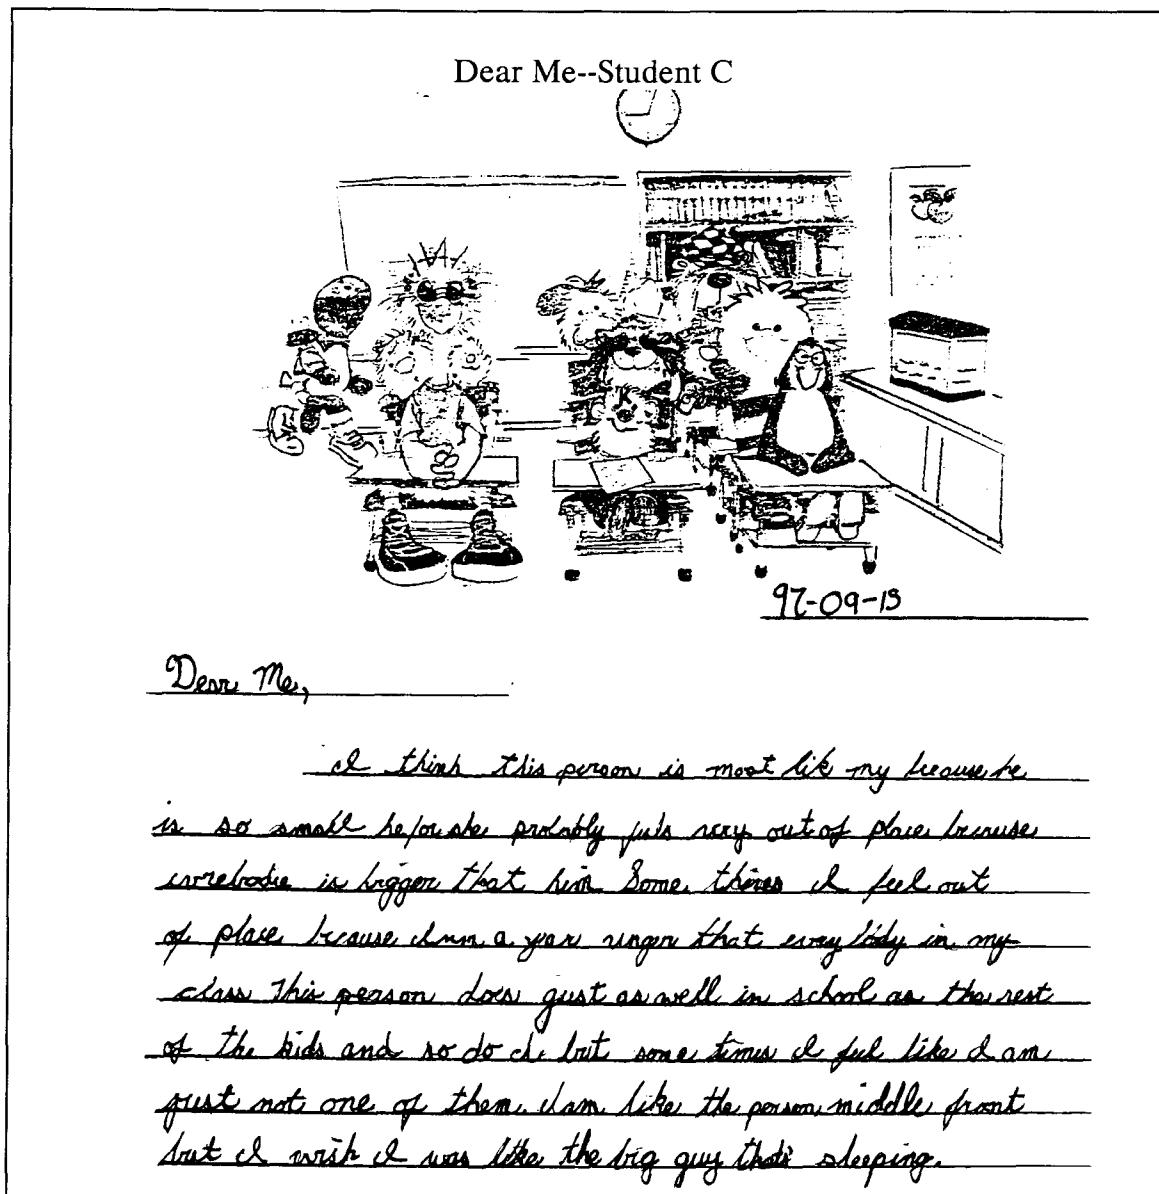 Dear Me--Student C
K
97-09-15
Dear Me,
I think this person is most lik my because he
is so small he/or she probably feels very out of place because
evrebodie is bigger that him Some times I feel out
of place because I am a year unger that every body in my
class This person does gust as well in school as the rest
of the kids and so do I. but some times I feel like I am
just not one of them. I am like the person middle front
but I wish I was like the big guy thats sleeping.